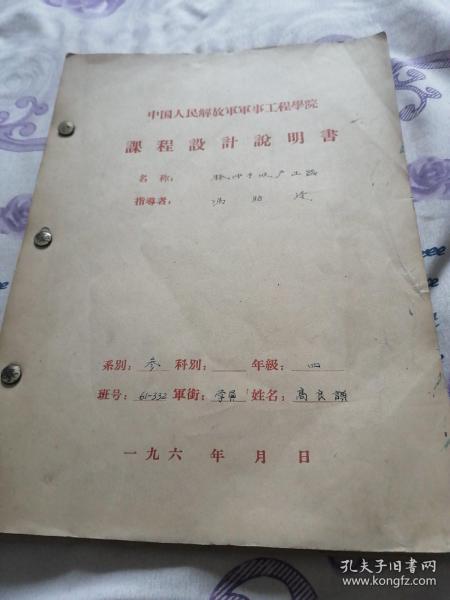 中国人民解放軍軍事工程學院
課程設計說明書
名称:
指導者: 馮
系別: 叁 科別: 年級: 四
班号: 61-332 軍銜: 学員 姓名: 高良
一九六 年 月 日
孔夫子旧書网
www.kongfz.com